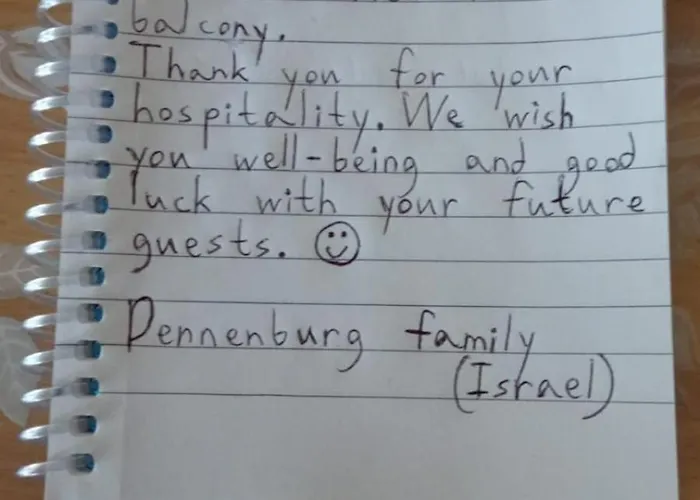 balcony.
Thank you for your
hospitality. We wish
you well-being and good
luck with your future
guests. ☺
Pennenburg family
(Israel)